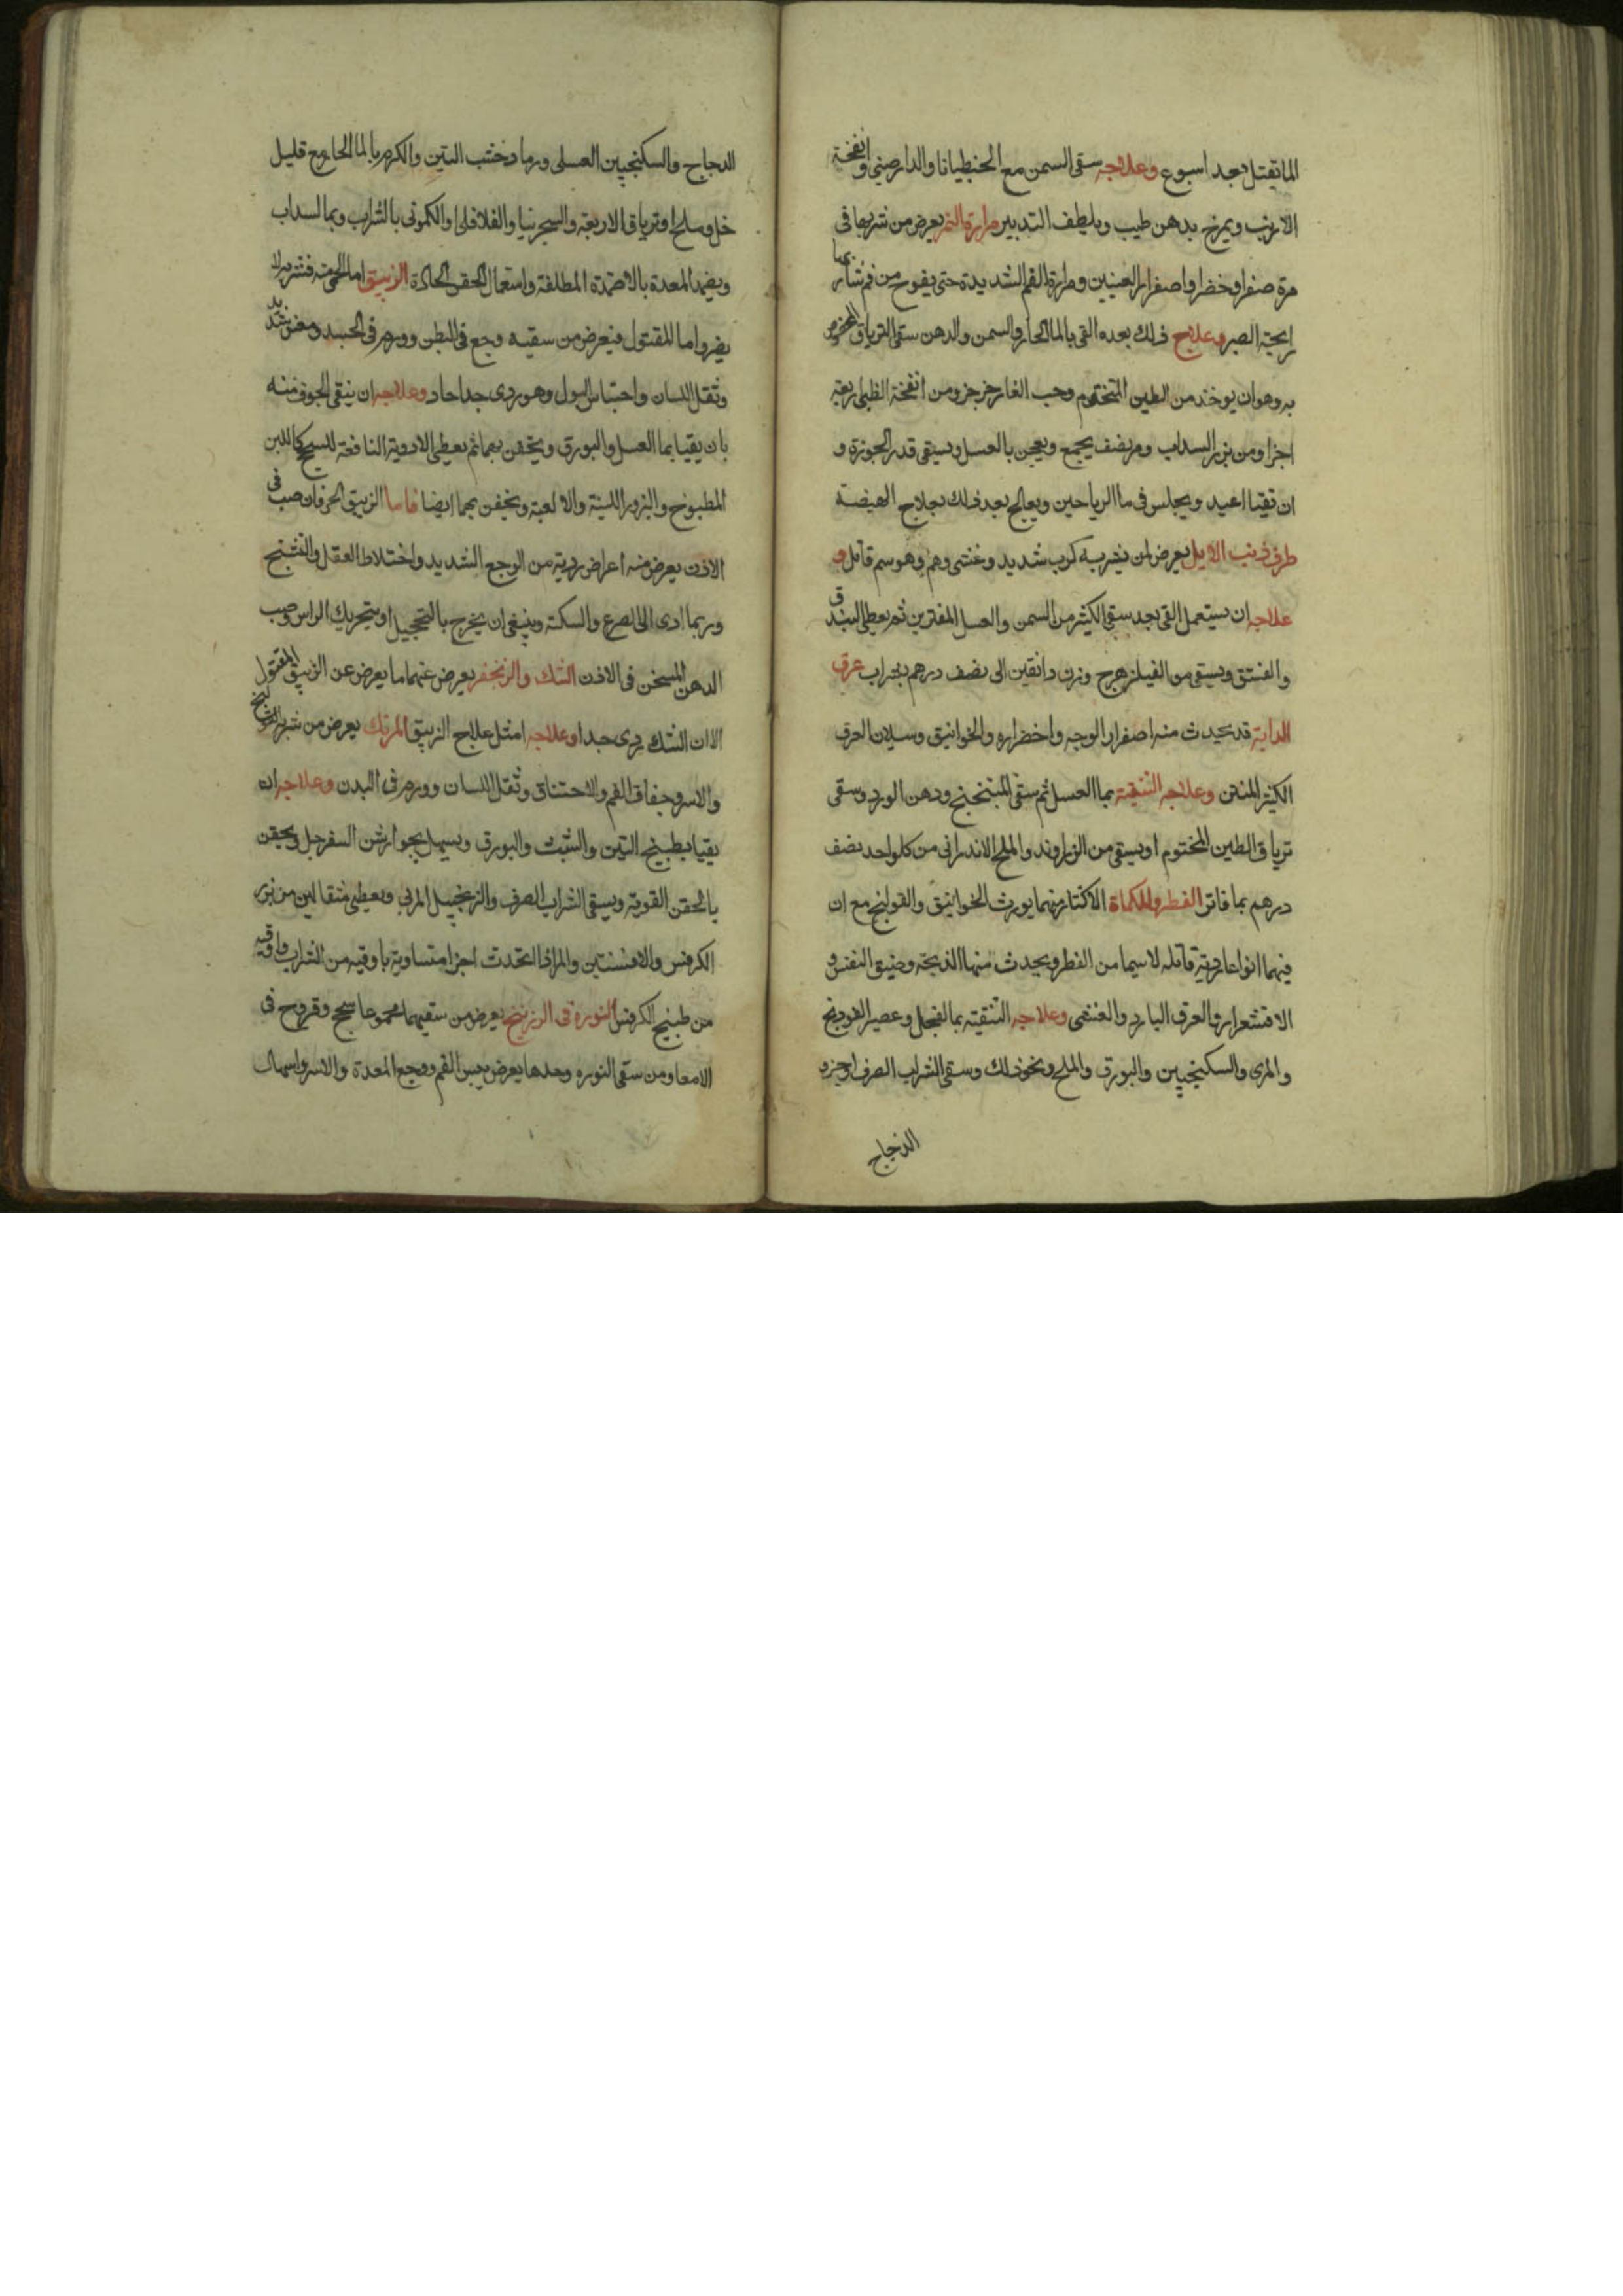 الما تقتل بعد اسبوع وعلاجه سقى السمن مع الجنطيانا والدارصينى وانفخة
الارنب ويمرخ بدهن طيب ويلطف التدبير مرارة النمر يعرض من شربها فى
مرة صفرا وخضرا واصفرار العينين ومرارة الفم الشديدة حتى يفوح من فم شاربها
رايحة الصبر وعلاج ذلك بعده القى بالما الحار والسمن والدهن سقى الترياق المخصوص
به وهو ان يوخذ من الطين المختوم وحب الغار جز جز ومن انفخة الظبى اربعة
اجزا ومن بزر السداب ومر نصف يجمع ويعجن بالعسل ويسقى قدر الجوزة و
ان تقيا اعيد ويجلس فى ما الرياحين ويعالج بعد ذلك بعلاج الهيضة
طرف ذنب الايل يعرض لمن يشربه كرب شديد وغشى وهم وهو سم قاتل و
علاجه ان يستعمل القى بعد سقى الكثير من السمن والعسل المفترين ثم يعطى البندق
والفستق ويسقى من الفيلزهرج وزن دانقين الى نصف درهم بشراب عرق
الدابة قد يحدث منه اصفرار الوجه واخضراره والخوانيق وسيلان العرق
الكثير المنتن وعلاجه التنقية بما العسل ثم سقى المبنختج ودهن الورد وسقى
ترياق الطين المختوم او يسقى من الزراوند والملح الاندرانى من كلواحد نصف
درهم بما فاتر الفطر والكماة الاكثار منهما يورث الخوانيق والقولنج مع ان
فيهما انواعا ردية قاتله لاسيما من الفطر ويحدث منها الذبحة وضيق النفس و
الاقشعرار والعرق البارد والغشى وعلاجه التنقية بما الفجل وعصير الفودنج
والمرى والسكنجبين والبورق والملح ونحو ذلك وسقى الشراب الصرف او جزو
الدجاج
الدجاج والسكنجبين العسلى ورماد خشب التين والكرم بالما الحار مع قليل
خل وملح او ترياق الاربعة والسجرنيا والفلافلى او الكمونى بالشراب وبما السداب
ويضمد المعدة بالاضمدة الملطفة واستعمال الحقن الحادة الزيبق اما الحى منه فشربه لا
يضر واما المقتول فيعرض من سقيه وجع فى البطن وورم فى الجسد ومغس شديد
وثقل اللسان واحتباس البول وهو ردى جدا حاد وعلاجه ان ينقى الجوف منه
بان يقيا بما العسل والبورق ويحقن بهما ثم يعطى الادوية النافعة للسحج كاللبن
المطبوخ والبزور اللينة والالعبة ويحقن بهما ايضا فاما الزيبق الحى فان صب فى
الاذن يعرض منه اعراض ردية من الوجع الشديد واختلاط العقل والتشنج
وربما ادى الى الصرع والسكتة وينبغى ان يخرج بالتحجيل او بتحريك الراس وصب
الدهن المسخن فى الاذن الشك والزنجفر يعرض عنهما ما يعرض عن الزيبق المقتول
الا ان الشك ردى جدا وعلاجه امثل علاج الزيبق المرتك يعرض من شربه
والاسر وجفاف الفم والاختناق وثقل اللسان وورم فى البدن وعلاجه ان
يقيا بطبيخ التين والشبث والبورق ويسهل بجوارشن السفرجل ويحقن
بالحقن القوية ويسقى الشراب الصرف والزنجبيل المربى ويعطى مثقالين من بزر
الكرفس والافسنتين والمر اذا اتخذت اجزا متساوية باوقيه من الشراب واوقيه
من طبيخ الكرفس النورة فى الزرنيخ يعرض من سقيهما مجموعا سحج وقروح فى
الامعا ومن سقى النوره وحدها يعرض يبس الفم ووجع المعدة والاسر واسهال